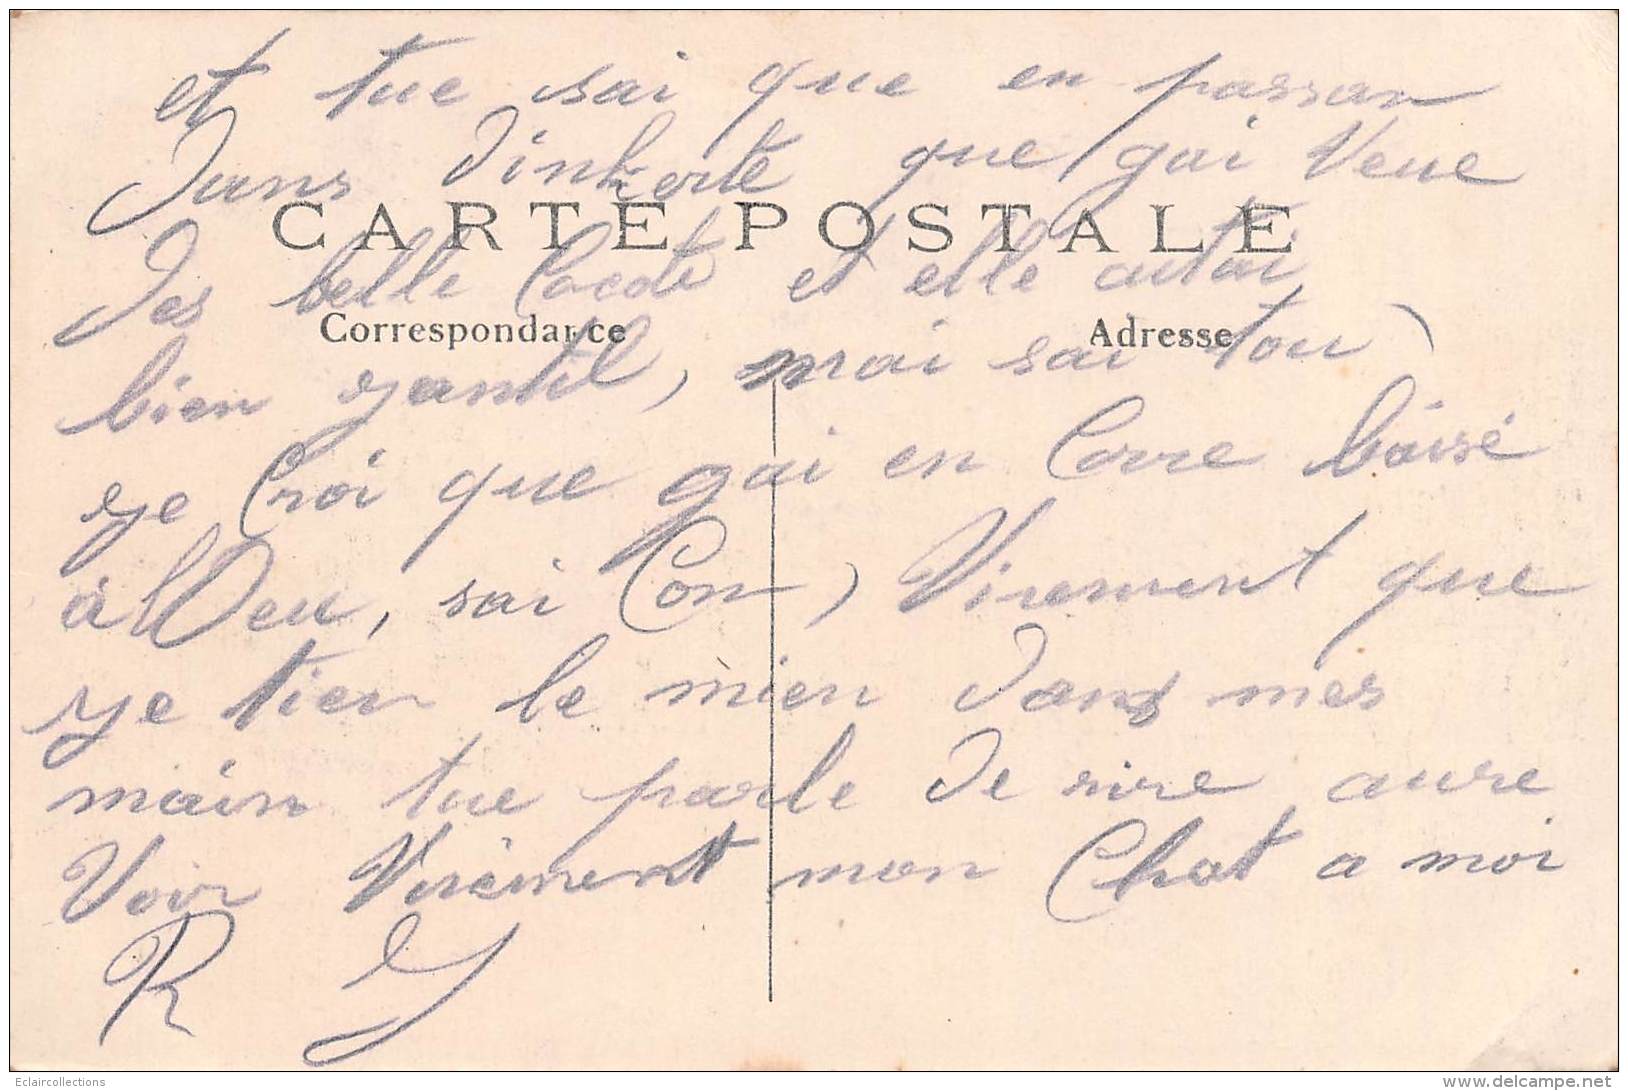 et tue sai que en passan
Dans Dinkerte que gai Veue
CARTE POSTALE
Des belle Cocote et elle autai
Correspondance
Adresse
bien yantil, mai sai tou
ye Croi que gai en Corre baisé
a Deu, sai Con, Virement que
ye tien le mien Dans mes
main tue parle De rire aure
Voir Virement mon Chat a moi
R
Eclaircollections
www.delcampe.net